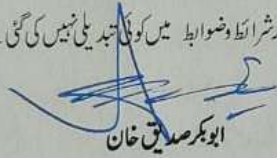 دشرائط وضوابط میں کوئی تبدیلی نہیں کی گئی۔
ابوبکر صدیق خان